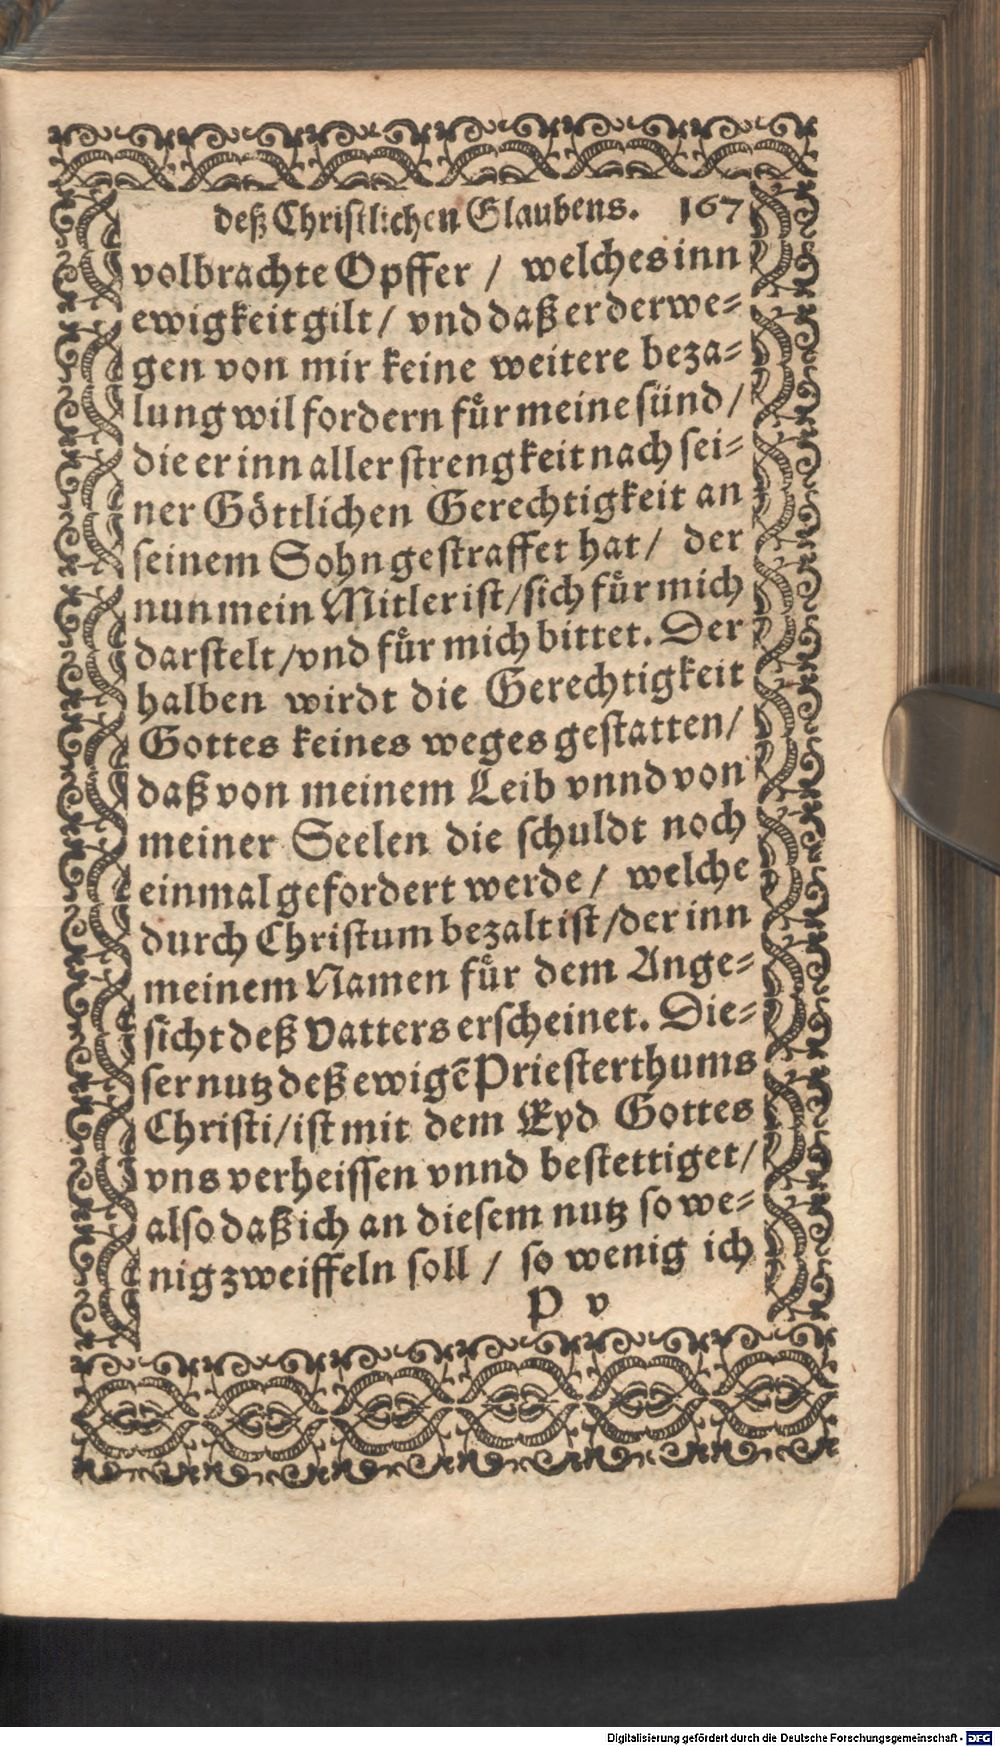 deß Christlichen Glaubens. 167
volbrachte Opffer / welches inn
ewigkeit gilt / vnd daß er derwe-
gen von mir keine weitere beza-
lung wil fordern fuͤr meine sünd /
die er inn aller strengkeit nach sei-
ner Göttlichen Gerechtigkeit an
seinem Sohn gestraffet hat / der
nun mein Mitler ist / sich fuͤr mich
darstelt / vnd fuͤr mich bittet. Der
halben wirdt die Gerechtigkeit
Gottes keines weges gestatten /
daß von meinem Leib vnnd von
meiner Seelen die schuldt noch
einmal gefordert werde / welche
durch Christum bezalt ist / der inn
meinem Namen fuͤr dem Ange-
sicht deß Vatters erscheinet. Die-
ser nutz deß ewigẽ Priesterthums
Christi / ist mit dem Eyd Gottes
vns verheissen vnnd bestettiget /
also daß ich an diesem nutz so we-
nig zweiffeln soll / so wenig ich
P v
Digitalisierung gefördert durch die Deutsche Forschungsgemeinschaft - DFG